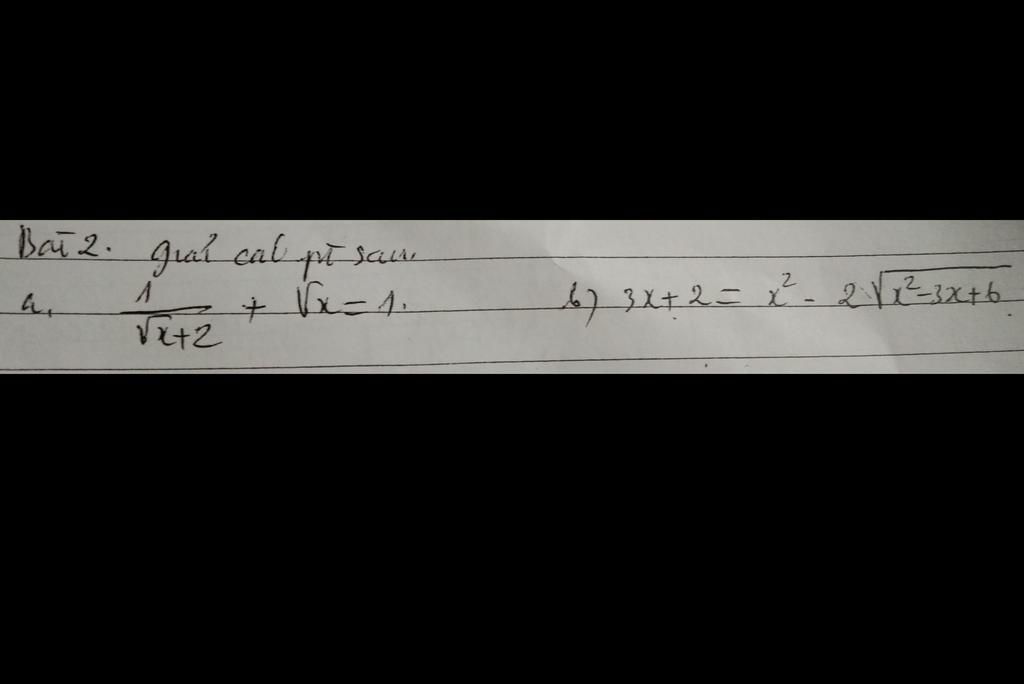 Bài 2. giải các pt sau.
a, 1/(√x+2) + √x = 1. b) 3x + 2 = x² - 2√(x²-3x+6)